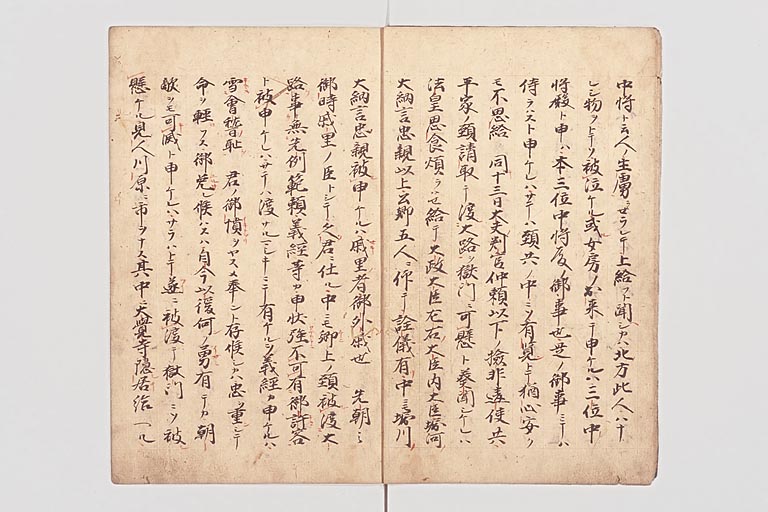 中将ト云人ノ生虜ニセラレテ上給フト聞シカハ北方此人ハナ
レシ物ヲトテソ被泣ケル或女房ノ出来テ申ケルハ三位中
将殿ト申ハ本三位中将殿ノ御事也是ノ御事ニテハ
侍ラスト申ケレハサテハ頸共ノ中ニソ有覧トテ猶心安ク
モ不思給 同十三日大夫判官仲頼以下ノ検非違使共
平家ノ頸請取テ渡大路ヲ獄門ニ可懸ト奏聞シケレハ
法皇思食煩ラハセ給テ太政大臣左右大臣内大臣堀河
大納言忠親以上公卿五人ニ仰テ詮儀有中ニ堀川
大納言忠親被申ケルハ戚里者御外戚也 先朝ニ
御時戚里ノ臣トシテ久君ニ仕ル中ニモ卿上ノ頸被渡大
路事無先例範頼義経等カ申状強不可有御許容
ト被申ケレハサテハ渡サルマシキニテ有ケルヲ義経カ申ケルハ
雪會稽恥 君ノ御憤ヲヤスメ奉ント存候シカハ忠ヲ重シテ
命ヲ軽クス御免候ハスハ自今以後何ノ勇有テカ朝
敵ヲモ可滅ト申ケレハサラハトテ遂ニ被渡テ獄門ニソ被
懸ケル見人川原ニ市ヲナス其中ニ大覚寺隠居給ヘル